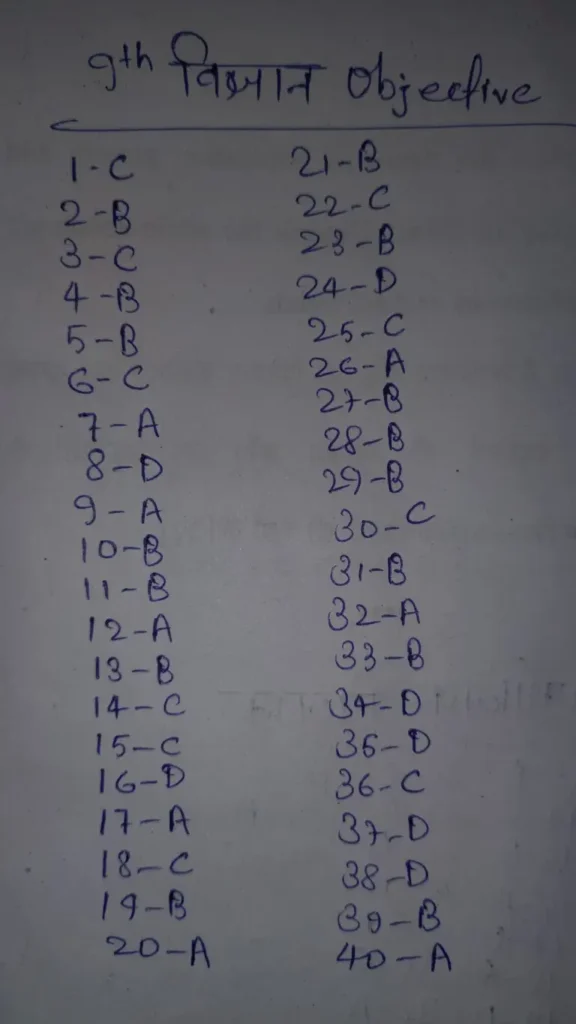 9th विज्ञान Objective
1-C
2-B
3-C
4-B
5-B
6-C
7-A
8-D
9-A
10-B
11-B
12-A
13-B
14-C
15-C
16-D
17-A
18-C
19-B
20-A
21-B
22-C
23-B
24-D
25-C
26-A
27-B
28-B
29-B
30-C
31-B
32-A
33-B
34-D
35-D
36-C
37-D
38-D
39-B
40-A